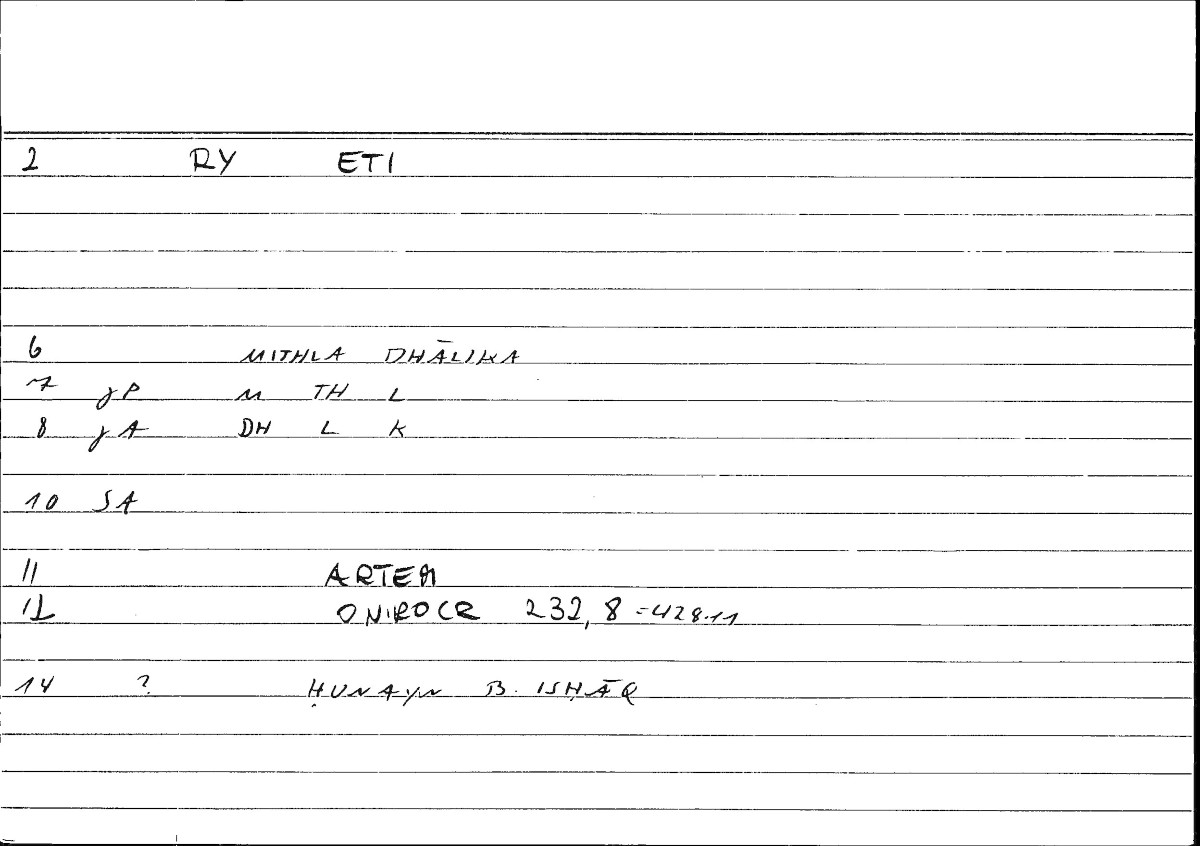 2 RY ETI
6 MITHLA DHĀLIKA
7 jP M TH L
8 jA DH L K
10 SA
11 ARTEM
12 ONIROCR 232, 8 = 428.11
14 ? ḤUNAYN B. ISḤĀQ